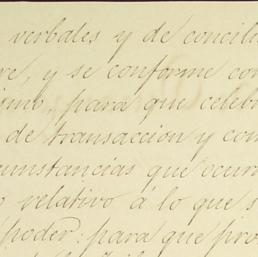 verbales y de concili
re, y se conforme con
ismo, para que celebr
de transacción y com
cunstancias que ocurr
o relativo á lo que s
poder: para que pro